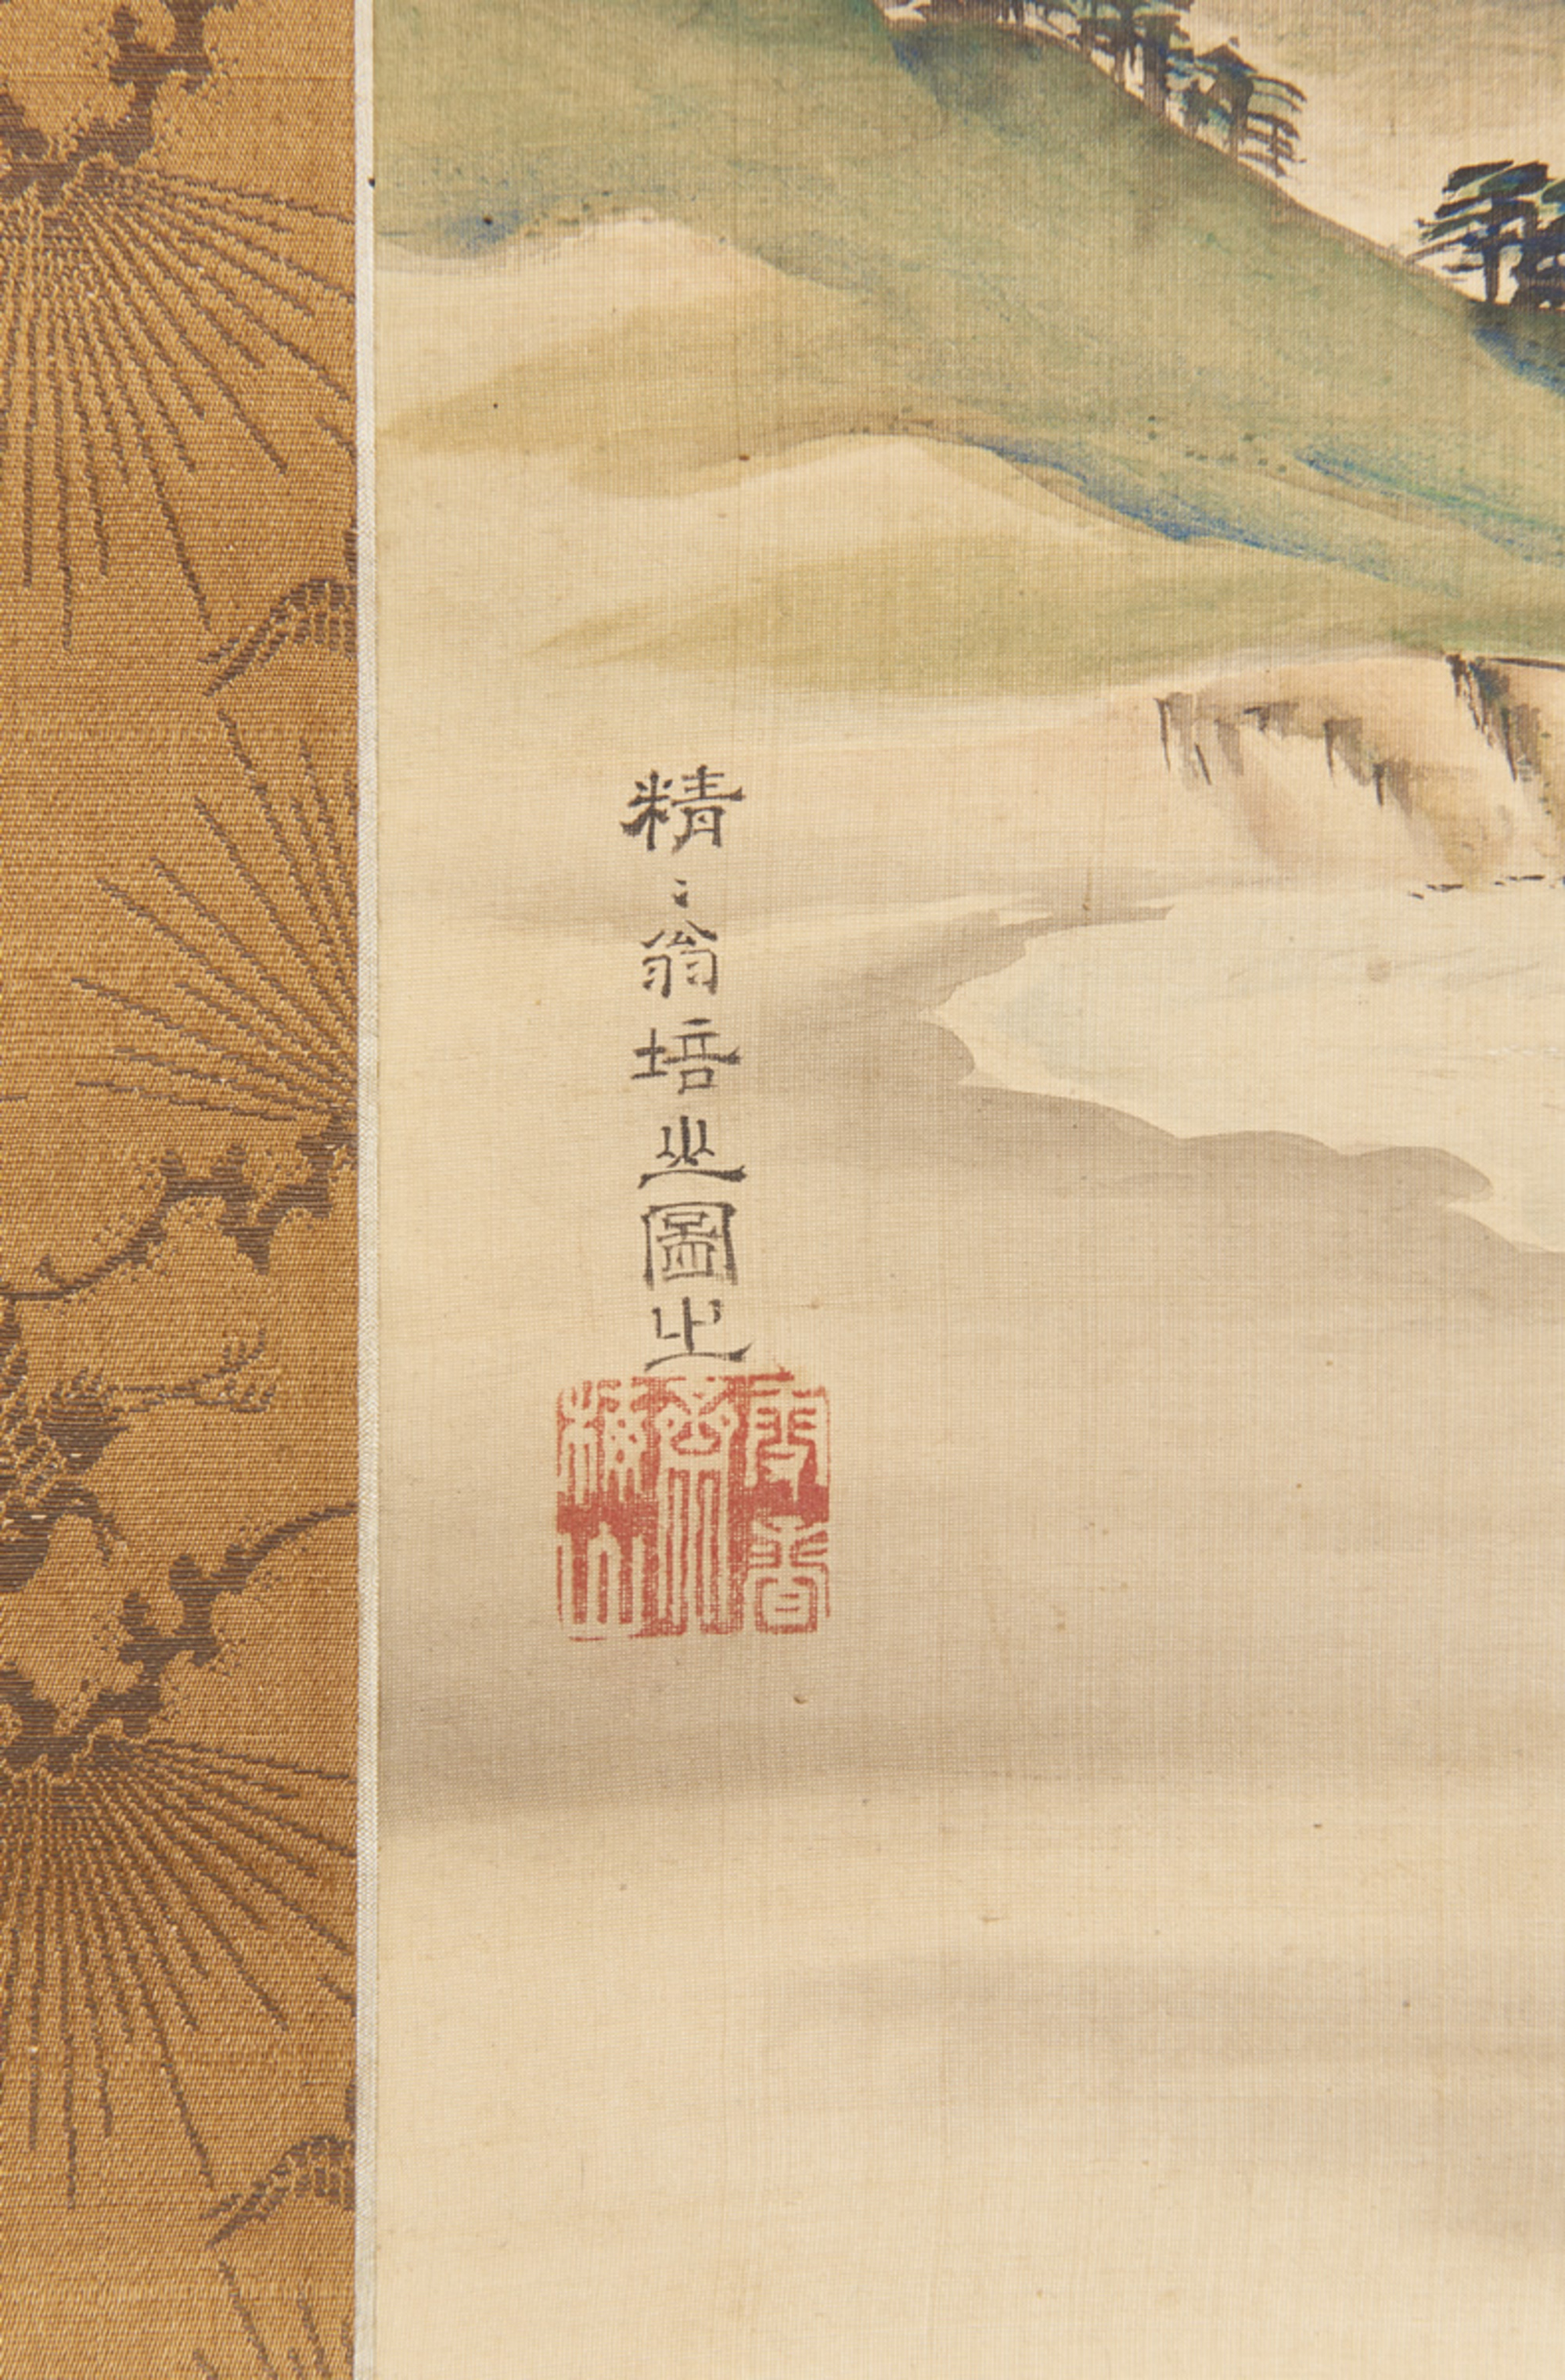 精〻翁培之圖之